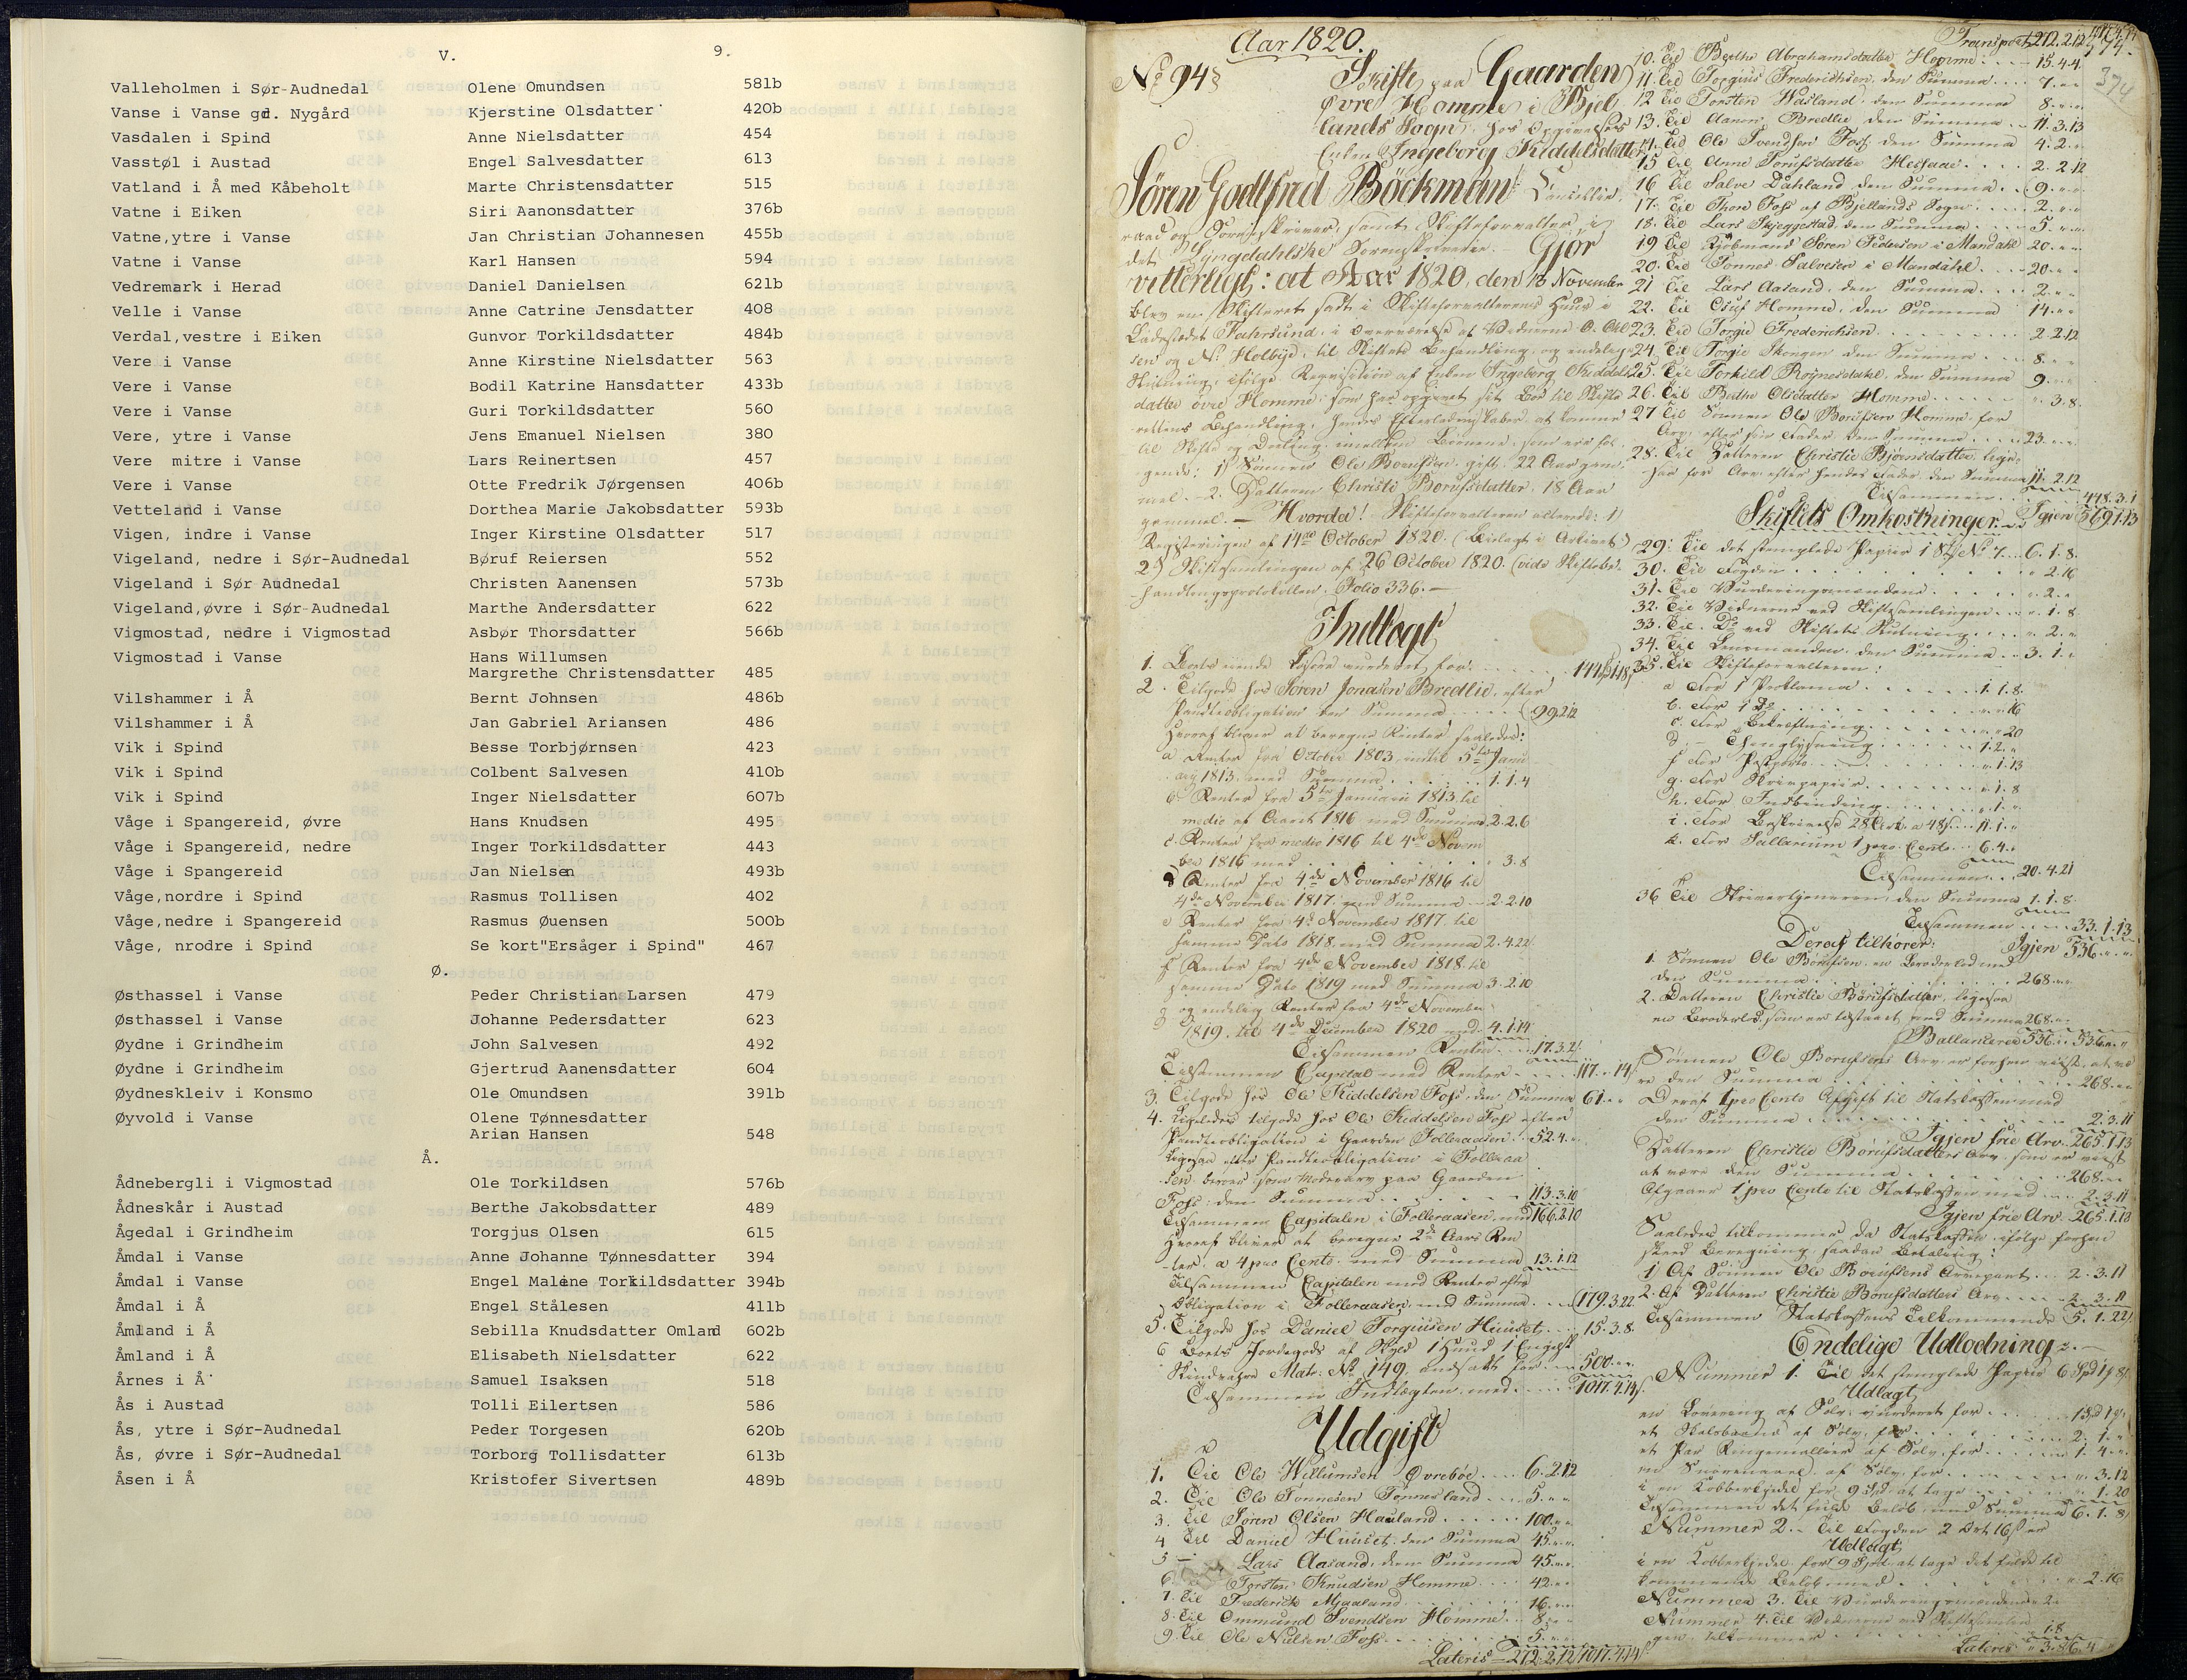 V. 9.
Valleholmen i Sør-Audnedal Olene Omundsen 581b
Vanse i Vanse gd. Nygård Kjerstine Olsdatter 420b
Vasdalen i Spind Anne Nielsdatter 454
Vasstøl i Austad Engel Salvesdatter 613
Vatland i Å med Kåbeholt Marte Christensdatter 515
Vatne i Eiken Siri Aanonsdatter 376b
Vatne,ytre i Vanse Jan Christian Johannesen 455b
Vatne i Vanse Karl Hansen 594
Vedremark i Herad Daniel Danielsen 621b
Velle i Vanse Anne Catrine Jensdatter 408
Verdal,vestre i Eiken Gunvor Torkildsdatter 484b
Vere i Vanse Anne Kirstine Nielsdatter 563
Vere i Vanse Bodil Katrine Hansdatter 433b
Vere i Vanse Guri Torkildsdatter 560
Vere, ytre i Vanse Jens Emanuel Nielsen 380
Vere mitre i Vanse Lars Reinertsen 457
Vere i Vanse Otte Fredrik Jørgensen 406b
Vetteland i Vanse Dorthea Marie Jakobsdatter 593b
Vigen, indre i Vanse Inger Kirstine Olsdatter 517
Vigeland, nedre i Sør-Audnedal Børuf Reiersen 552
Vigeland i Sør Audnedal Christen Aanensen 573b
Vigeland,øvre i Sør-Audnedal Marthe Andersdatter 622
Vigmostad, nedre i Vigmostad Asbør Thorsdatter 566b
Vigmostad i Vanse Hans Willumsen
Margrethe Christensdatter 485
Vilshammer i Å Bernt Johnsen 486b
Vilshammer i Å Jan Gabriel Ariansen 486
Vik i Spind Besse Torbjørnsen 423
Vik i Spind Colbent Salvesen 410b
Vik i Spind Inger Nielsdatter 607b
Våge i Spangereid, øvre Hans Knudsen 495
Våge i Spangereid, nedre Inger Torkildsdatter 443
Våge i Spangereid Jan Nielsen 493b
Våge,nordre i Spind Rasmus Tollisen 402
Våge,nedre i Spangereid Rasmus Øuensen 500b
Våge, nrodre i Spind Se kort"Ersåger i Spind" 467
Ø.
Østhassel i Vanse Peder Christian Larsen 479
Østhassel i Vanse Johanne Pedersdatter 623
Øydne i Grindheim John Salvesen 492
Øydne i Grindheim Gjertrud Aanensdatter 604
Øydneskleiv i Konsmo Ole Omundsen 391b
Øyvold i Vanse Olene Tønnesdatter
Arian Hansen 548
Å.
Ådnebergli i Vigmostad Ole Torkildsen 576b
Ådneskår i Austad Berthe Jakobsdatter 489
Ågedal i Grindheim Torgjus Olsen 615
Åmdal i Vanse Anne Johanne Tønnesdatter 394
Åmdal i Vanse Engel Malene Torkildsdatter 394b
Åmdal i Å Engel Stålesen 411b
Åmland i Å Sebilla Knudsdatter Omland 602b
Åmland i Å Elisabeth Nielsdatter 622
Årnes i Å Samuel Isaksen 518
Ås i Austad Tolli Eilertsen 586
Ås, ytre i Sør-Audnedal Peder Torgesen 620b
Ås, øvre i Sør-Audnedal Torborg Tollisdatter 613b
Åsen i Å Kristofer Sivertsen 489b
Aar 1820.
No 94
Skifte paa Gaarden
Øvre Homme i Bjel
lands Sogn, hos Opgivelses
Enken Ingeborg Kiddelsdatter
Sören Godtfred Böckman Cancellie
raad og Sorenskriver, samt Skifteforvalter i
det Lyngdahlske Sorenskriverie. Gjør
vitterligt: at Aar 1820, den 13 November
blev en Skifteret sadt i Skifteforvalterens Huus i
Ladestedet Fahrsund, i Overværelse af Vidnerne
sen og N. Holbye, til Skiftets Behandling og endelig
Slutning, ifølge Requisition af Enken Ingeborg Kiddels
datter øvre Homme, som har opgivet sit Boe til Skifte
rettens Behandling, hendes Efterladenskaber at komme
til Skifte og Deeling imellem Børnene, som ere føl
gende: 1) Sönnen Ole Borufsen gift, 22 Aar gam
mel. 2. Datteren Christi Borufsdatter, 18 Aar
gammel. — Hvorda! Skifteforvalteren allerede: 1)
Registeringen af 14de October 1820. (Beilagt i Arkivet)
2) Skiftesamlingen af 26 October 1820. (vide Skiftebe
handlingsprotokollen Folio 336. —
Indtægt
1. Boets rørende Løsøre vurderet for
2. Tilgode hos Sören Jonasen Bredlie, efter
Pandteobligation den Summa 99.2.12
Hvoraf bliver at beregne Renter saaledes:
a Renter fra October 1803, indtil 5te Janu
ary 1813. med Summa 1.1.4
b. Renter fra 5te Januarii 1813 til
medio af Aaret 1816 med Summa 2.2.6
c. Renter fra medio 1816 til 4de Novem
ber 1816 med 3.8
d Renter fra 4de November 1816 til
4de November 1817, med Summa 2.2.10
e Renter fra 4de November 1817 til
samme Dato 1818 med Summa 2.4.22
f Renter fra 4de November 1818 til
samme Dato 1819 med Summa 3.2.10
g og endelig Renter fra 4de November
1819, til 4de December 1820 med 4.1.14
Tilsammen Renter 17.3.2
Tilsammen Capital med Renter 117. " 14
3. Tilgode hos Ole Kiddelsen Foss, den Summa 61. " "
4. Ligeledes tilgode hos Ole Kiddelsen Foss efter
Pandteobligation i Gaarden Folleraasen 52.4.
Ligesaa efter Pandteobligation i Folleraa
sen
Foss, den Summa 113.3.10
Tilsammen Capitalen i Folleraasen med 166.2.10
Hvoraf bliver at beregne 2de Aars Ren
ter, a 4 pro Cento med Summa 13.1.12
Tilsammen Capitalen med Renter efter
Obligation i Folleraasen, med Summa 179.3.22
5. Tilgode hos Daniel Torgiusen Huuset 15.3.8.
6 Boets Jordegods af Skyld 1 Huud 1 Engelsk
Skind Matr: No 149 ansatt for 500. " "
Tilsammen Indtægten med 1017.4.14
Udgift
1. Til Ole Willumsen Øvrebøe 6.2.12
2. Til Ole Tönnesen Tönnesland 5. " "
3. Til Sören Olsen Hauland 100. " "
4 Til Daniel Huuset, den Summa 45. " "
5 Lars Aasand, den Summa 45. " "
6. Torsten Knudsen Homme 42. " "
7. Til Frederick Mjaaland 16. " "
8. Til Ommund Svendsen Homme 8. " "
9. Til Ole Nielsen Foss 5. " "
Lateris 272.2.12 1017.4.14
Transport 272.2.12
374
10. Til Berthe Abrahamsdatter Homme 15.4.4
11. Til Torgius Frederichsen, den Summa 7. " "
12 Til Torsten Wasland, den Summa 8. " "
13. Til Aanen Bredlie den Summa 11.3.13
14. Til Ole Svendsen Foss, den Summa 4.2. "
15 Til Anne Torufsdatter Hessaae 2.2.12
16 Til Salve Dahland, den Summa 9. " "
17. Til Thore Foss af Bjellands Sogn 2. " "
18. Til Lars Skjeggestad, den Summa 5. " "
19 Til Kjøbmand Sören Pedersen i Mandahl 20. " "
20. Til Tönnes Salvesen i Mandahl 20. " "
21 Til Lars Aasand, den Summa 2. " "
22. Til Homme, den Summa 14. " "
23. Til Torgie Frederichsen 2.2.12
24 Til Torgie Skongen den Summa 8. " "
25. Til Torkild Röynesdahl, den Summa 9. " "
26. Til Berthe Olsdatter Homme " 3.8.
27 Til Sönnen Ole Borufsen Homme for
Arv efter sin Fader, den Summa 23. " "
28. Til Datteren Christie Bjørnsdatter lige
saa for Arv efter hendes Fader, den Summa 11.2.12
Tilsammen 448.3.1
Skiftets Omkostninger Igjen 569.1.13
29: Til det stemplede Papiir No 7 6.1.8.
30. Til Fogden " 2.16
31. Til Vurderingsmændene " 2. "
32. Til Vidnerne ved Skiftesamlingen " 1.8.
33. Til Do ved Skiftets Slutning " 2. "
34. Til Lensmanden, den Summa 3.1. "
35. Til Skifteforvalteren:
a For 1 Proklama 1.1.8.
b. For 1 Do " " 16
c. For Bekræftning " " 20
d — Thinglysning 1.2. "
f For Postporto " 1.13
g. For Skrivpapiir " 1.8
h. For Indbinding " 1. "
i. For Beskrivelse 28 Ark a 48 s 11.1. "
k. For Sallarium 1 pro Cento 6.4. "
Tilsammen 20.4.21
36 Til Skriverkjeneren, den Summa 1.1.8.
Tilsammen 33.1.13
Deraf tilhører: Igjen 536. " "
1. Sönnen Ole Borufsen, en Broderlod med
den Summa 268. " "
2. Datteren Christie Börufsdatter, ligesaa
en Broderlod, som er tilstaaet med Summa 268. " "
Ballancerer 536. " " 536. " "
Sönnen Ole Borufsens Arv er forhen viist at væ
re den Summa 268. " "
Deraf 1 pro Cento Afgift til Statskassen med
den Summa 2.3.11
Igjen frie Arv 265.1.13
Datteren Christie Borufsdatters Arv som er viist
at være den Summa 268. " "
Afgaaer 1 pro Cento til Statskassen med 2.3.11
Igjen frie Arv 265.1.13
Saaledes tilkommer da Statskassen ifølge forhen
skeed Beregning, saadan Betaling:
1) Af Sönnen Ole Borufsens Arvepart 2.3.11
2. Af Datteren Christie Borufsdatters Arv 2.3.11
Tilsammen Statskassens Tilkommende 5.1.22
Endelige Udlodning
Nummer 1. Til det stemplede Papiir 6 Spd 1 8
Udlagt
en Lovering af Sølv, vurderet for
et Halsbaand af Sølv, for 2.1. "
et Par Ringemallier af Sølv, for 1.4. "
en Snørenaael af Sølv for " 3.12
i en Kobberkjedel for 9 Spd at tage " 1.20
Tilsammen det fulde Beløb, med Summa 6.1.8
Nummer 2. Til Fogden 2 Ort 16 s er
Udlagt
i en Kobberkjedel for 9 Spd at tage det fulde til
kommende Beløb med " 2.16
Nummer 3. Til Vurderingsmændene 2 "
Nummer 4. Til Vidnerne ved Skiftesamlin
gen tilkommer 1.8
Lateris